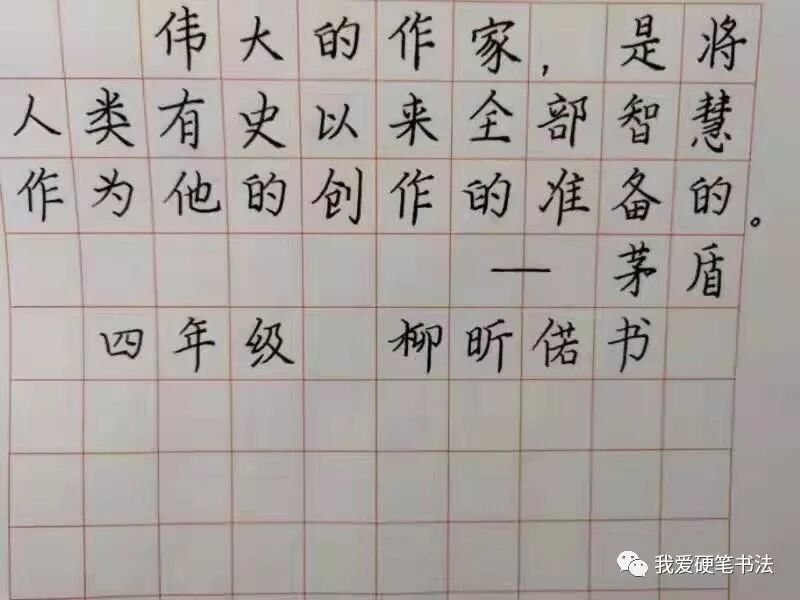 伟大的作家，是将
人类有史以来全部智慧
作为他的创作的准备的。
— 茅盾
四年级 柳昕偌书
我爱硬笔书法